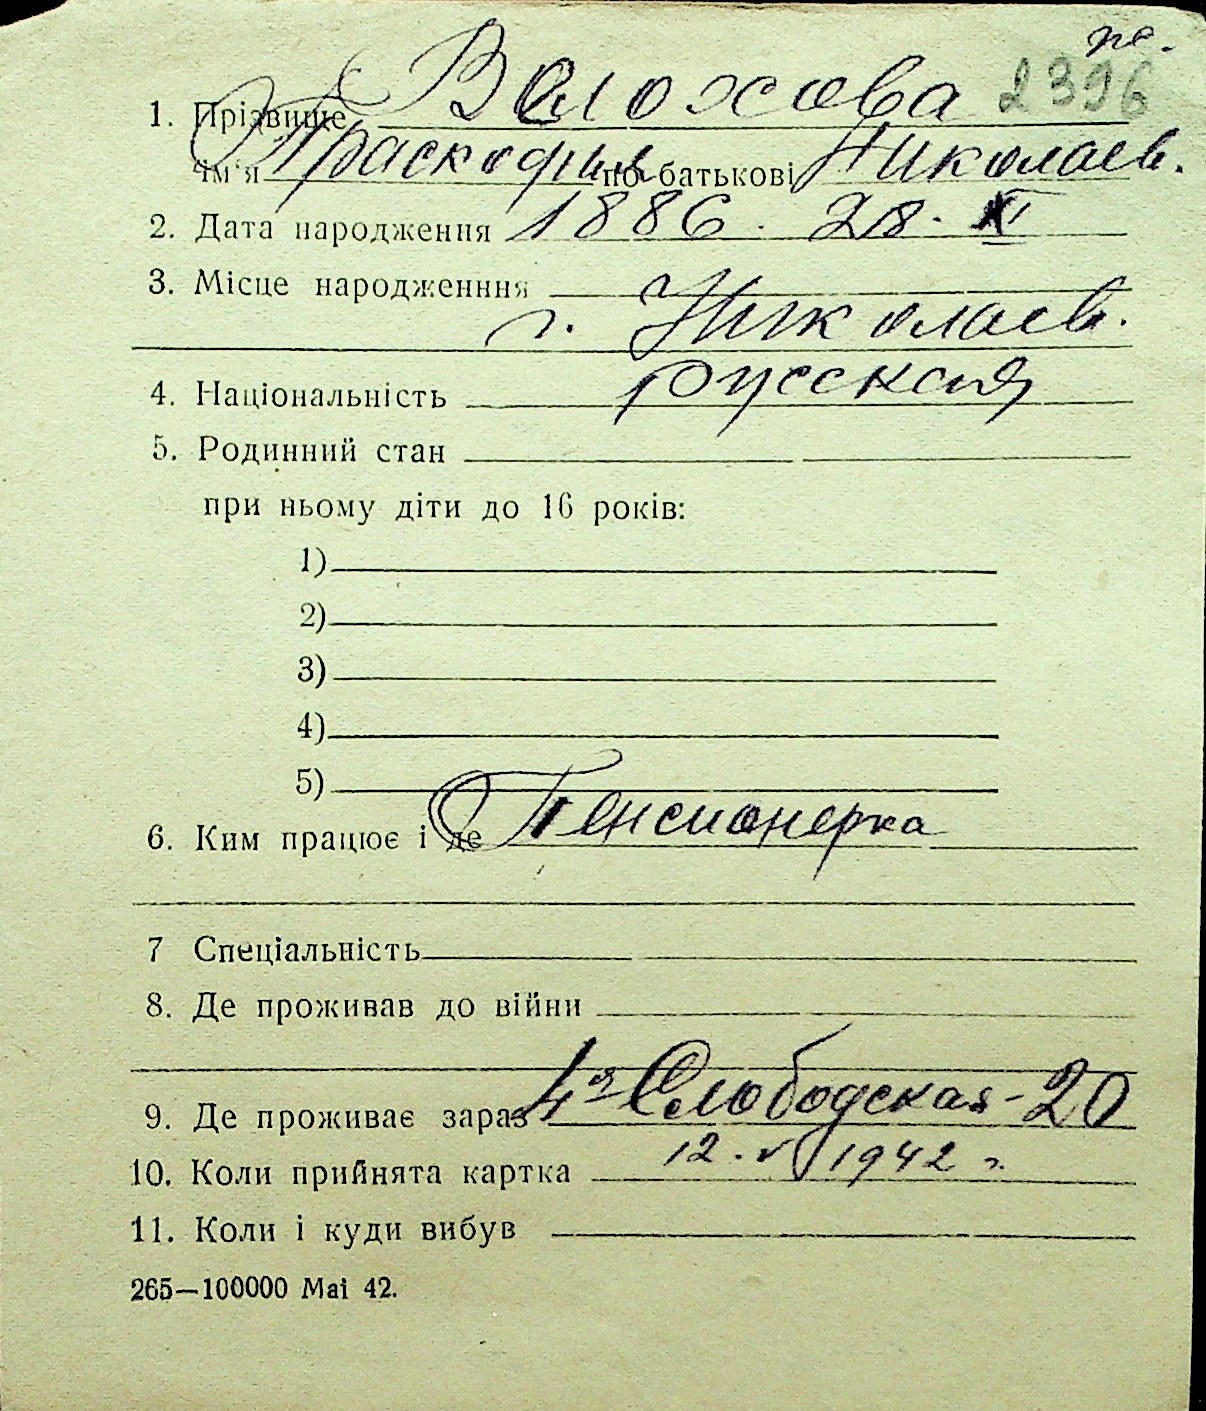 2396
1. Прізвище Волохова
Ім'я Праскофия по батькові Николаев.
2. Дата народження 1886. 28. XI
3. Місце народженння
г. Николаев.
4. Національність Русская
5. Родинний стан
при ньому діти до 16 років:
1)
2)
3)
4)
5)
6. Ким працює і де Пенсионерка
7 Спеціальність
8. Де проживав до війни
9. Де проживає зараз 4я Слободская-20
10. Коли прийнята картка 12. 1942 г.
11. Коли і куди вибув
265—100000 Mai 42.